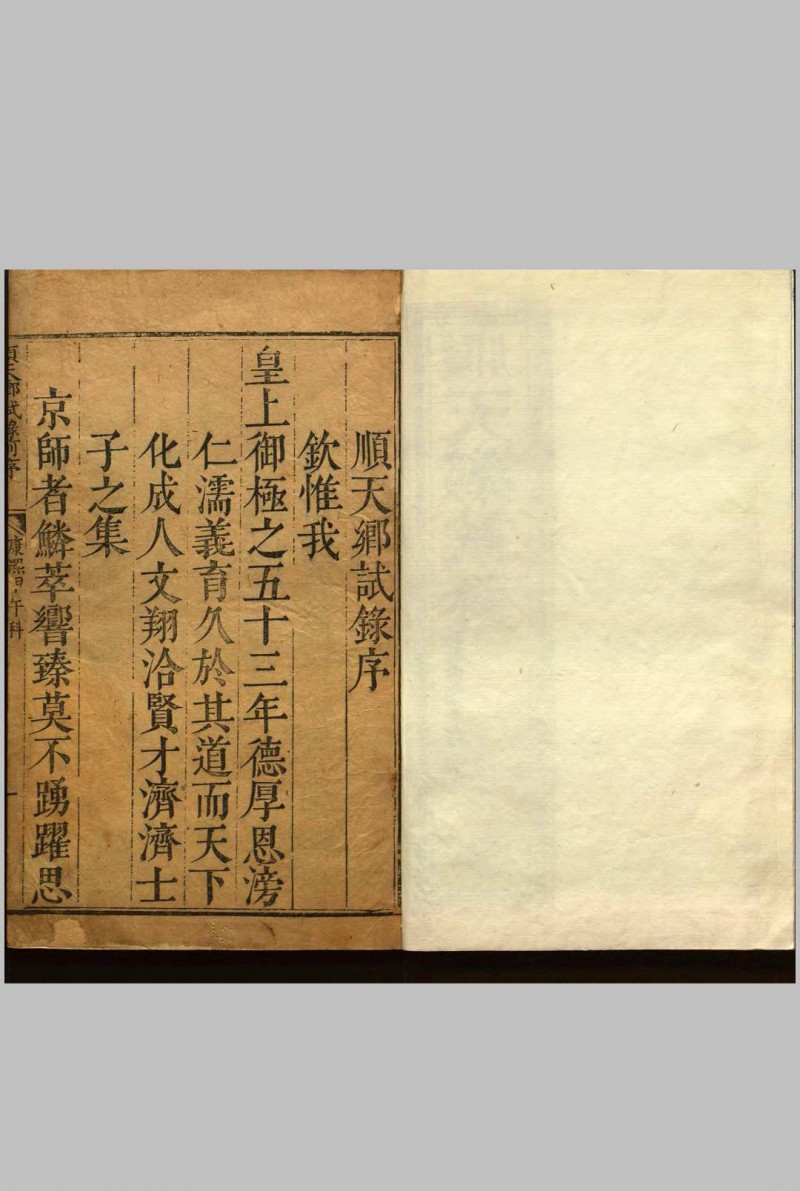 順天鄉試錄序
欽惟我
皇上御極之五十三年德厚恩滂
仁濡義育久於其道而天下
化成人文翔洽賢才濟濟士
子之集
京師者鱗萃響臻莫不踴躍思
順天鄉試錄前序
康熙甲午科
一